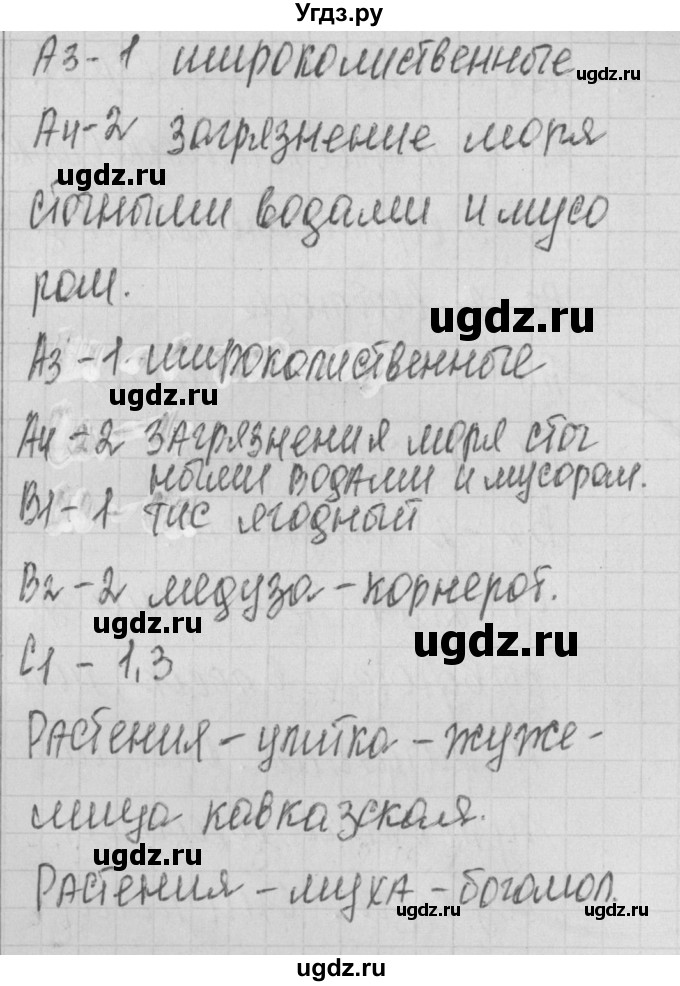 Угдз.ру
А3-1 широколиственные
ugdz.ru
А4-2 загрязнение моря
ugdz.ru
сточными водами и мусо
ром.
ugdz.ru
А3-1 широколиственные
А4-2 загрязнения моря сточ
ными водами и мусором.
В1-1 тис ягодный
В2-2 медуза-корнерот.
ugdz.ru
ugdz.ru
С1-1,3
Растения-улитка-жуже-
лица кавказская.
ugdz.ru
Растения-муха-богомол.
ugdz.ru
ugdz.ru
ugdz.ru